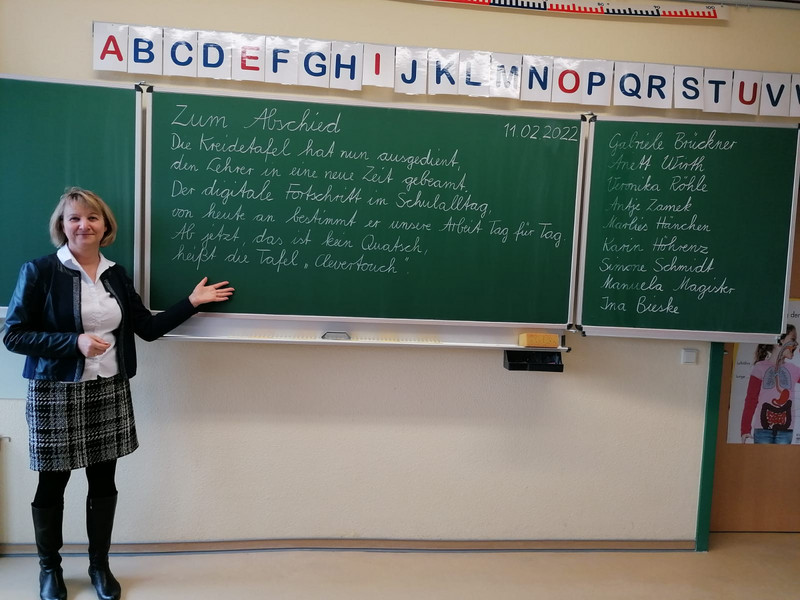 A B C D E F G H I J K L M N O P Q R S T U V
Zum Abschied 11.02.2022
Die Kreidetafel hat nun ausgedient,
den Lehrer in eine neue Zeit gebeamt.
Der digitale Fortschritt im Schulalltag,
von heute an bestimmt er unsere Arbeit Tag für Tag.
Ab jetzt, das ist kein Quatsch,
heißt die Tafel „Clevertouch".
Gabriele Brückner
Anett Wirth
Veronika Röhle
Antje Zamek
Marlies Hänchen
Karin Höhrenz
Simone Schmidt
Manuela Magister
Ina Bieske